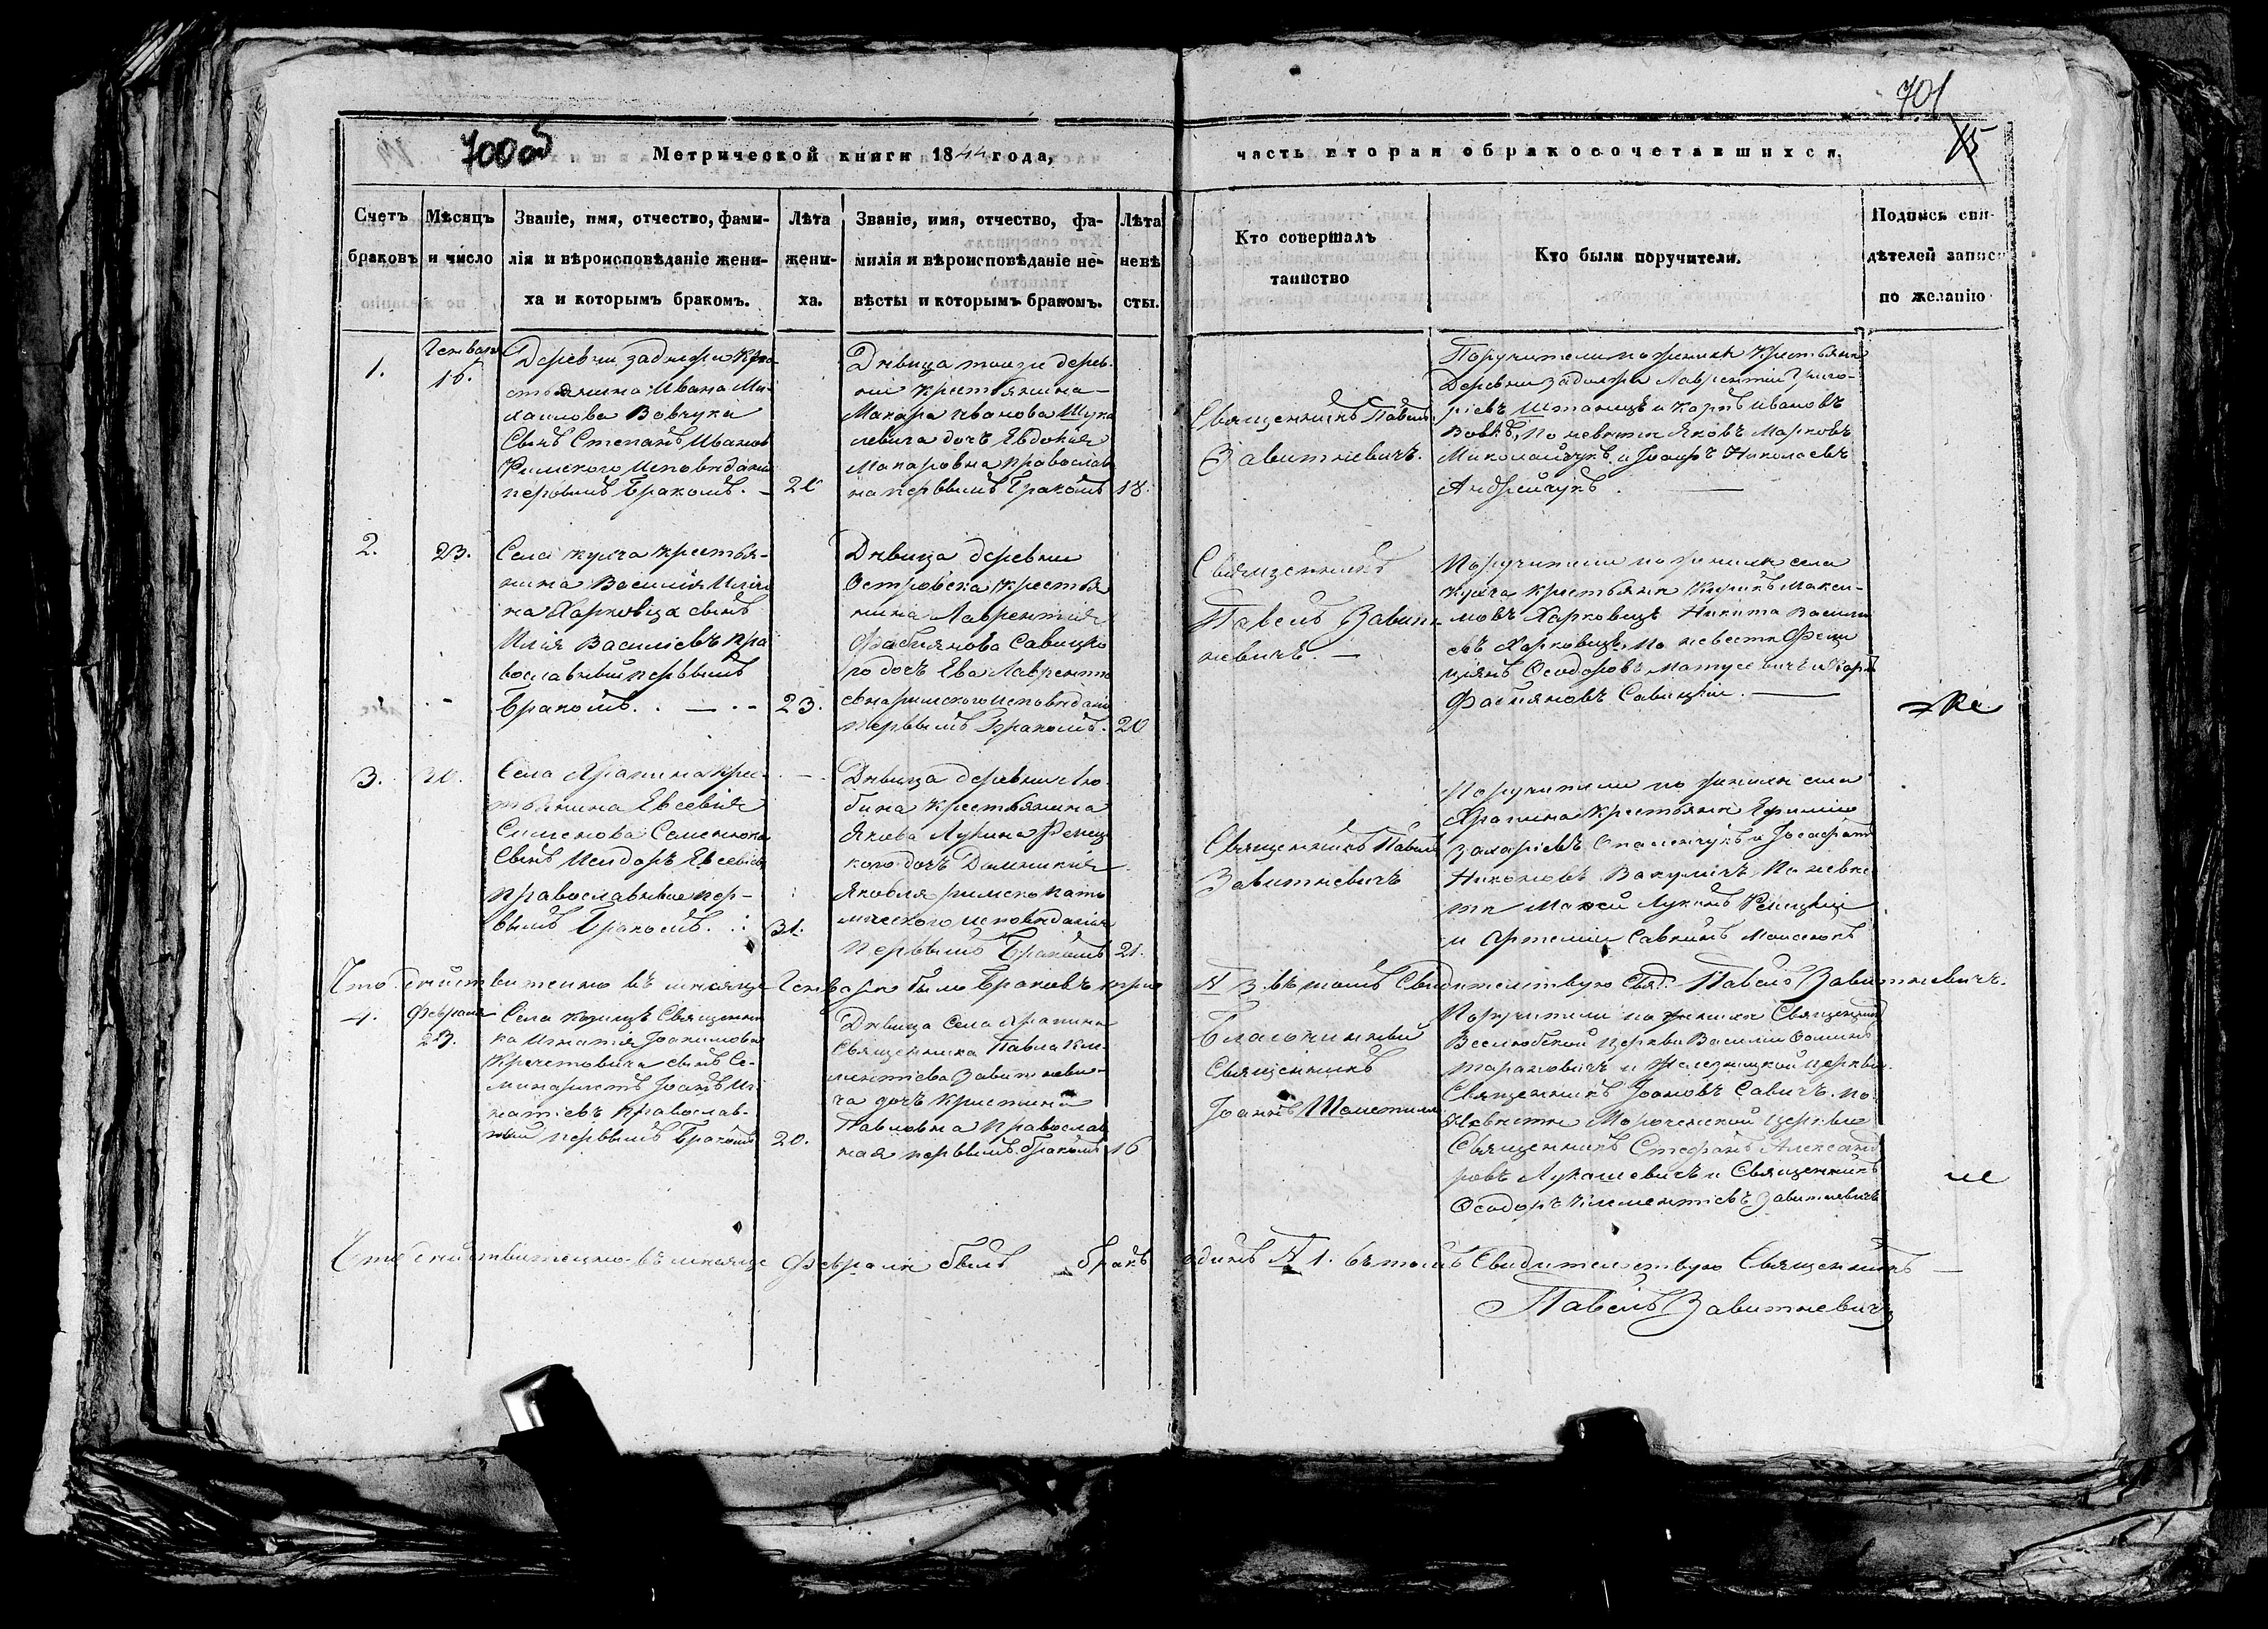 701
700об
15
Метрической книги 1844 года,
часть вторая о бракосочетавшихся.
Счетъ браковъ
Мѣсяцъ и число
Званіе, имя, отчество, фами-
лія и вѣроисповѣданіе жени-
ха и которымъ бракомъ.
Лѣта
жени-
ха.
Званіе, имя, отчество, фа-
милія и вѣроисповѣданіе не-
вѣсты и которымъ бракомъ.
Лѣта
невѣ
сты.
Кто совершалъ
таинство
Кто были поручители.
Подпись сви-
дѣтелей записи
по желанію
1.
Генваря
16.
Деревни Задиора Кре
стьянина Ивана Ми-
хайлова Вовчука
Сынъ Степанъ Ивановъ
Римского Исповѣданія
первымъ бракомъ.
20
Дѣвица тоиже дерев-
ни крестьянина
Макара Иванова
левича дочъ Евдокія
Макаровна православ
на первымъ бракомъ
18.
Священникъ Павелъ
Завитневичъ.
Поручители по женихѣ крестьяне
Деревни Лаврентій Григо-
ріевъ и Карпъ Ивановъ
Вовкъ, по невѣсти Яковъ Марковъ
Миколайчукъ и Іосифъ Николаевъ
Андрейчукъ.
2.
23.
Села Кулча крестья-
нина Василія Иліи
на Харковца сынъ
Илія Василіевъ пра
вославный первымъ
бракомъ.
23.
Дѣвица деревни
Островска крестья
нина Лаврентія
Фабіянова Савицко
го дочъ Ева Лаврентіе
евна римского исповѣданія
первымъ бракомъ.
20
Священникъ
Павелъ Завит
невичъ.
Поручители по женихѣ села
Кулча крестьяне Макси-
мовъ Харковецъ Никита Василі
евъ Харковецъ, по невестѣ Фели
ціянъ Ѳеодоровъ Матусевичъ и Карпъ
Фабіяновъ Савицкій.
3.
30.
Села Храпина крес-
тьянина Евсевія
Сименова Семенюка
Сынъ Исидоръ Евсевіевъ
православные пер-
вымъ бракомъ.
31.
Дѣвица деревни Лю-
бина крестьянина
Якова Лукина Рениц
кого дочъ Домникія
Яковля римско като
лическаго исповѣданія
первымъ бракомъ
21.
Священникъ Павелъ
Завитневичъ
Поручители по женихѣ села
Храпина крестьяне
Захаріевъ и Іосафатъ
Никоновъ Вакуличъ. По невѣс
тѣ Мокей Лукинъ Реницкій
и Артемій Савкинъ
Что дѣйствительно въ мѣсяцѣ Генварѣ было браковъ три
№ 3. въ томъ Свидѣтельствую Свящ. Павелъ Завитневичъ.
4.
Февраля
23.
Села Козлицъ Священни
ка Игнатія Іоакимова
сынъ Се-
минаристъ Іоаннъ Иг-
натіевъ православ-
ный первымъ бракомъ
20.
Дѣвица Села Храпина
Священника Павла Кли-
ментіева Завитневи-
ча дочъ Кристина
Павловна православ
ная первымъ бракомъ
16
Благочинный
Священникъ
Іоаннъ
Поручители по женихѣ Священникъ
церкви Василій Ѳоминъ
Тарановичъ и церкви
Священникъ Іоановъ Савичъ. по
невѣсти Мороченской церкви
Священникъ Стефанъ Александ
ровъ Лукашевичъ и Священникъ
Ѳеодоръ Климентіевъ Завитневичъ
Что дѣйствительно въ мѣсяце Февралѣ былъ бракъ
одинъ № 1. въ томъ Свидѣтельствую Священникъ
Павелъ Завитневичъ